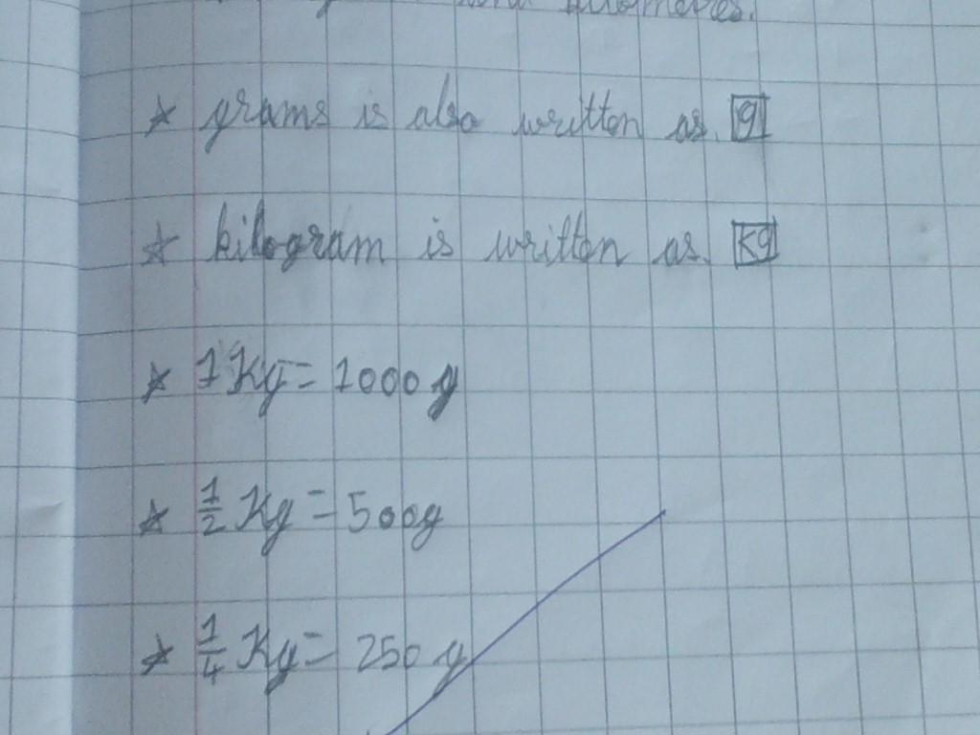 ★ grams is also written as. g
★ kilogram is written as. kg
★ 1 Kg = 1000 g
★ 1/2 Kg = 500g
★ 1/4 Kg = 250 g